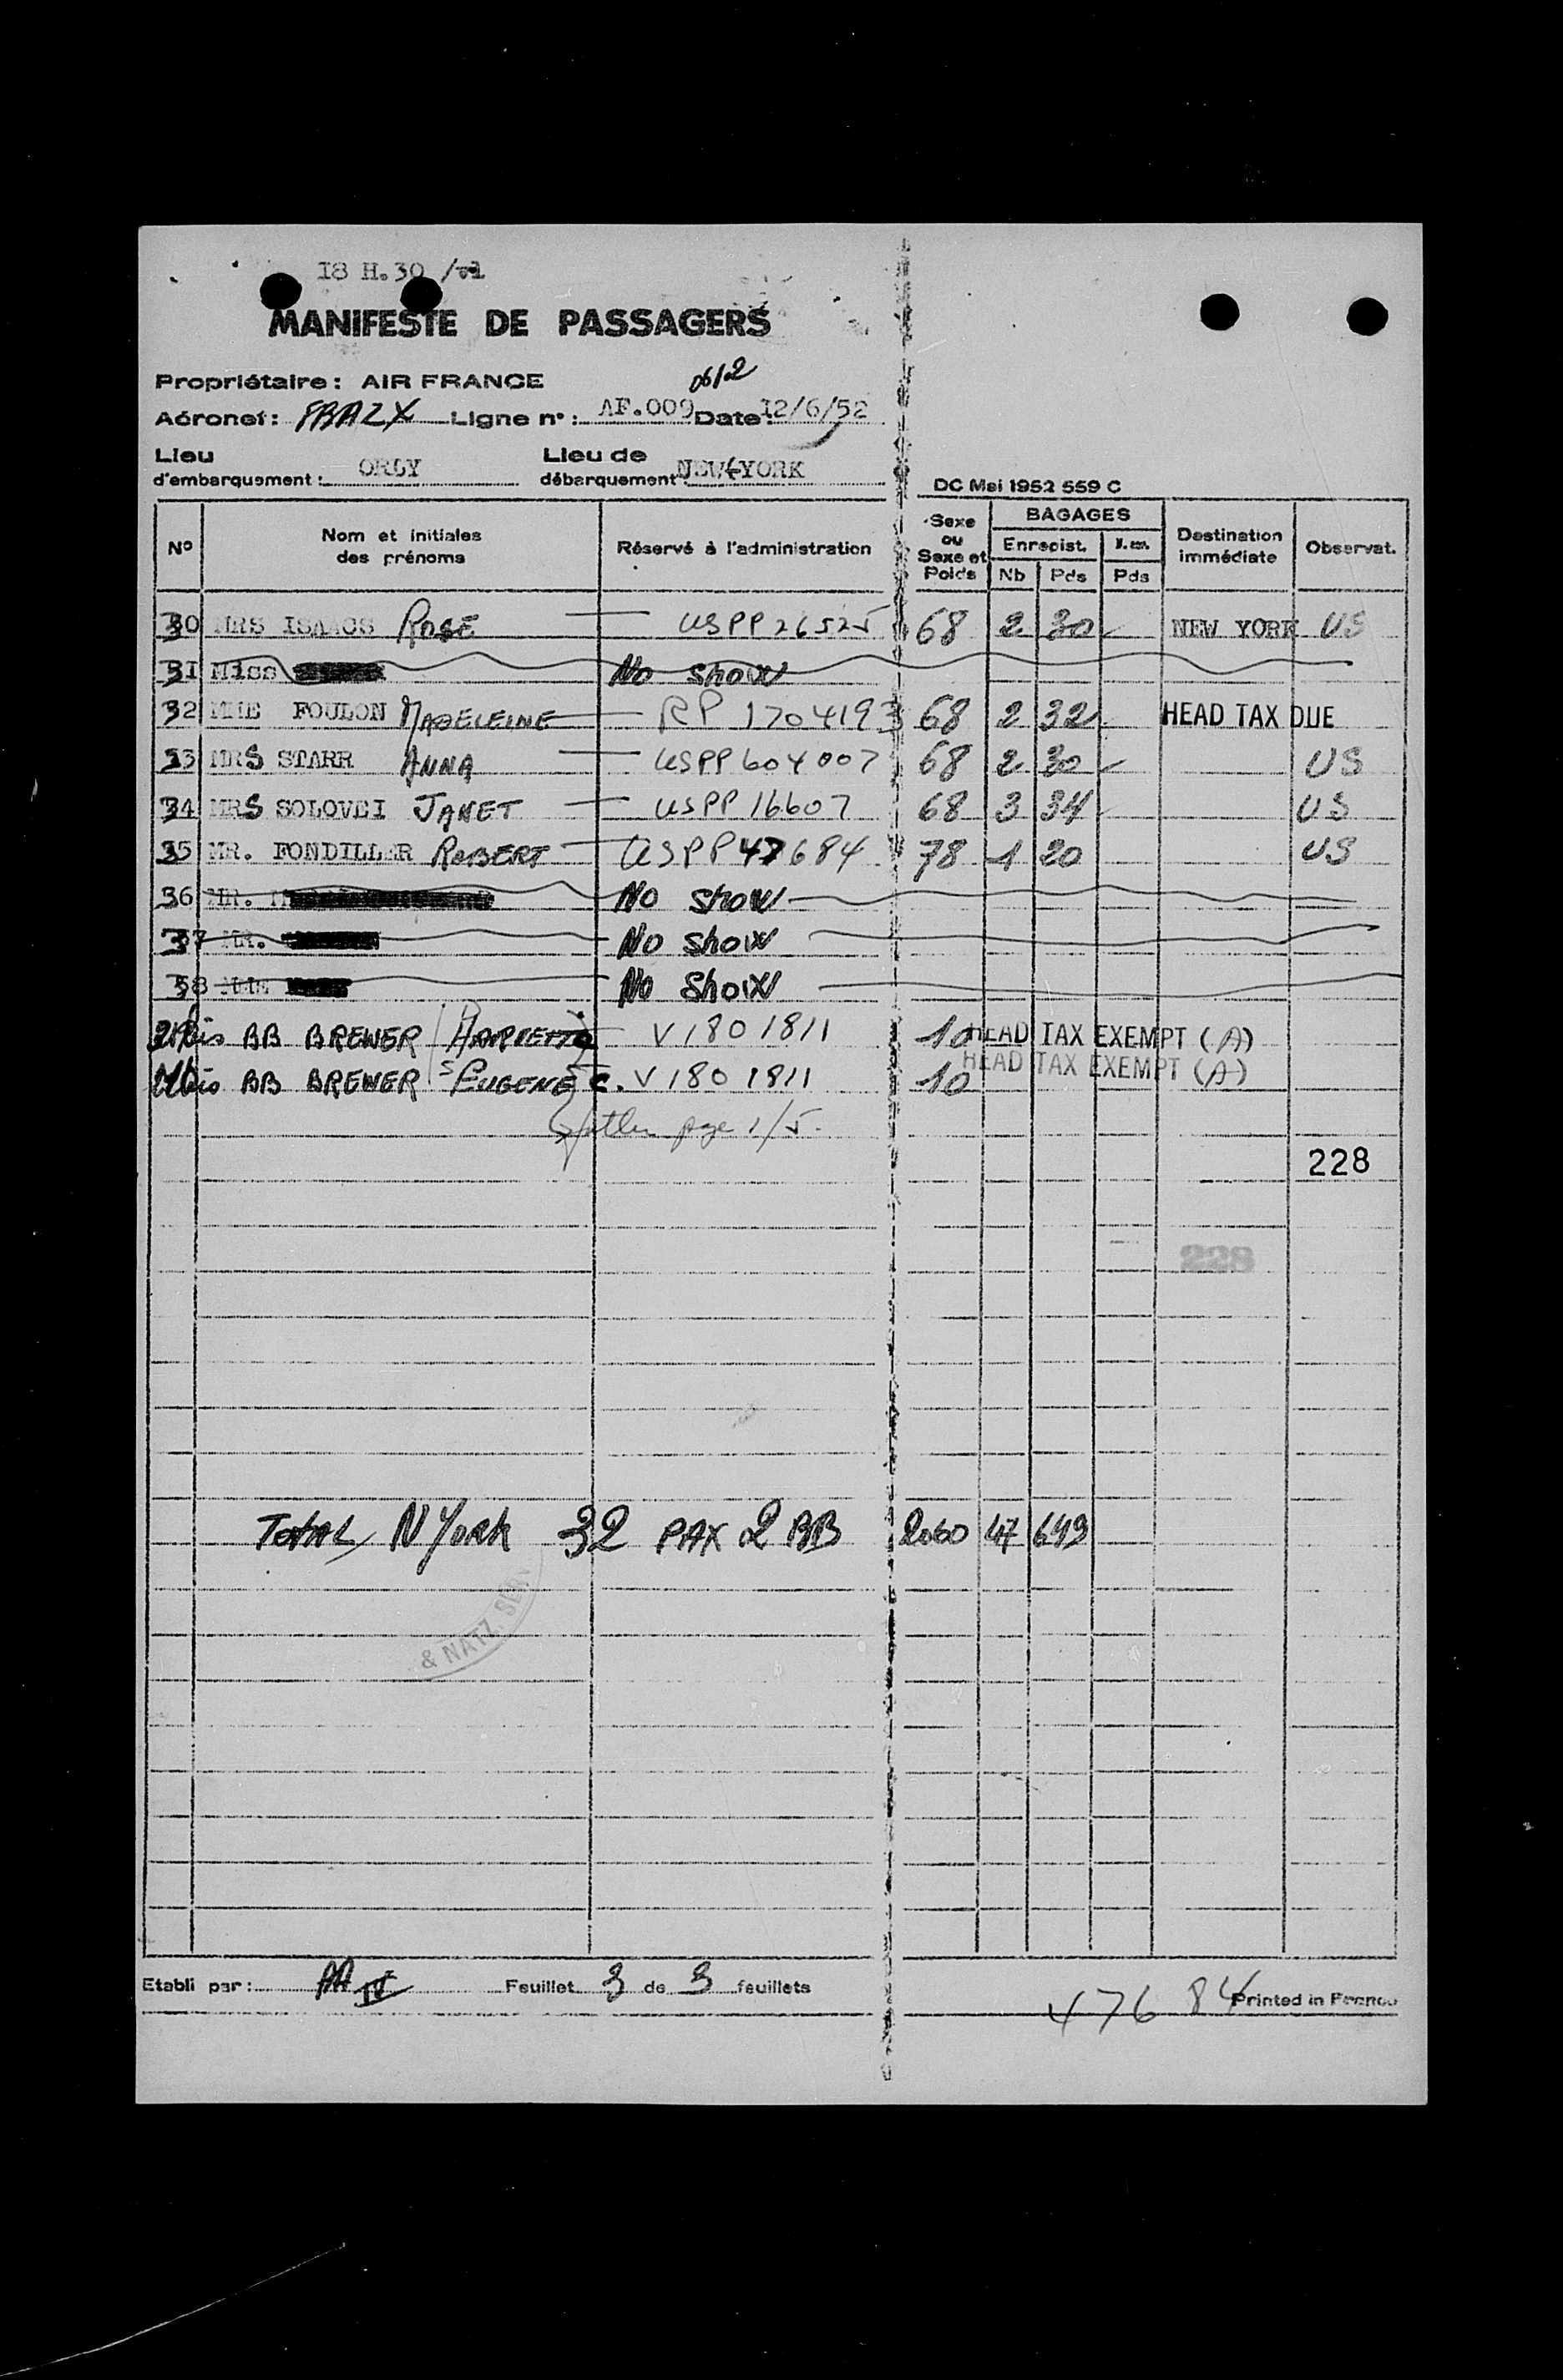 18 H.30
MANIFESTE DE PASSAGERS
Propriétaire : AIR FRANCE 0612
Aéronef : FBAZX Ligne n° : AF.009 Date : 12/6/52
Lieu d'embarquement : ORLY Lieu de débarquement : NEW-YORK
DC Mai 1952 559 C
N° Nom et initiales des prénoms Réservé à l'administration Sexe ou Sexe et Poids BAGAGES Enregist. Nb Pds Pds Destination immédiate Observat.
30 MRS ISAACS ROSE — USPP 26525 68 2 30 NEW YORK US
31 Miss No show
32 MME FOULON MADELEINE — RP 1704193 68 2 32 HEAD TAX DUE
33 MRS STARR ANNA — USPP 604007 68 2 30 US
34 MRS SOLOVEI JANET — USPP 16607 68 3 34 US
35 MR. FONDILLER ROBERT — USPP 47684 78 1 20 US
36 MR. No show
37 MR. No show
38 No show
bis BB BREWER V1801811 10 HEAD TAX EXEMPT (A)
bis BB BREWER EUGENE C. V1801811 10 HEAD TAX EXEMPT (A)
page 1/5.
228
228
TOTAL N York 32 PAX 2 BB 2060 47 649
& NATZ. SERV
Etabli par : AA IV Feuillet 3 de 3 feuillets
476 84 Printed in France